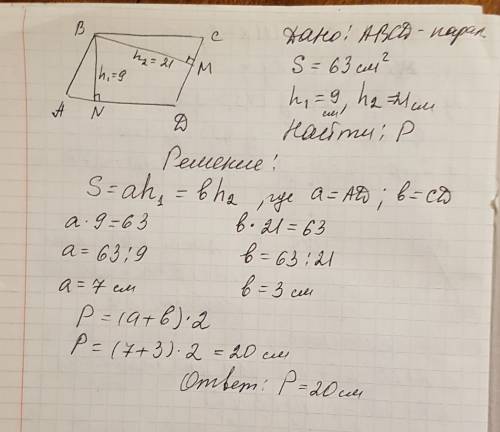 B
C
h₂ = 21
M
h₁=9
A
N
D
Дано: ABCD - парал
S = 63 см²
h₁ = 9 см, h₂ = 21 см
Найти: P
Решение:
S = ah₁ = bh₂, где a = AD; b = CD
a · 9 = 63
b · 21 = 63
a = 63 : 9
b = 63 : 21
a = 7 см
b = 3 см
P = (a + b) · 2
P = (7 + 3) · 2 = 20 см
Ответ: P = 20 см